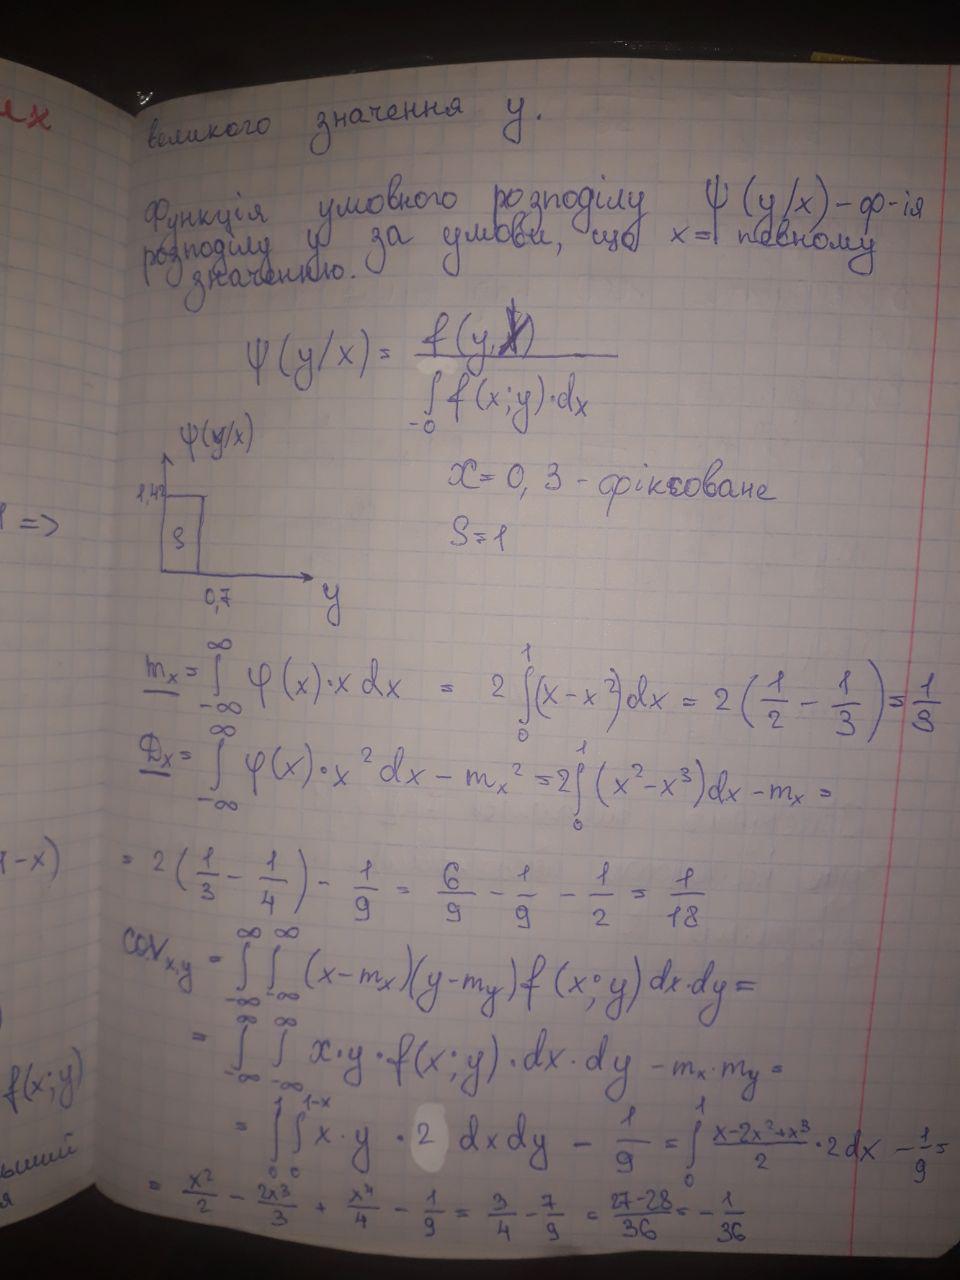 лх
великого значення y.
Функція умовного розподілу ψ(y/x) – ф-ія
розподілу y за умови, що x = певному
значенню.
ψ(y/x) = f(y, x) / ∫ f(x; y)·dx
-0
ψ(y/x)
1,42
S
0,7
y
X = 0,3 - фіксоване
S = 1
=>
m_x = ∫_{-∞}^{∞} φ(x)·x dx = 2 ∫_0^1 (x - x²)dx = 2(1/2 - 1/3) = 1/3
D_x = ∫_{-∞}^{∞} φ(x)·x² dx - m_x² = 2∫_0^1 (x² - x³)dx - m_x =
-x)
= 2(1/3 - 1/4) - 1/9 = 6/9 - 1/9 - 1/2 = 1/18
cov_{x,y} = ∫_{-∞}^{∞} ∫_{-∞}^{∞} (x - m_x)(y - m_y) f(x; y) dx·dy =
= ∫_{-∞}^{∞} ∫_{-∞}^{∞} x·y·f(x; y)·dx·dy - m_x·m_y =
f(x; y)
= ∫_0^1 ∫_0^{1-x} x·y·2 dxdy - 1/9 = ∫_0^1 (x - 2x² + x³)/2 · 2dx - 1/9 =
= x²/2 - 2x³/3 + x⁴/4 - 1/9 = 3/4 - 7/9 = (27-28)/36 = -1/36